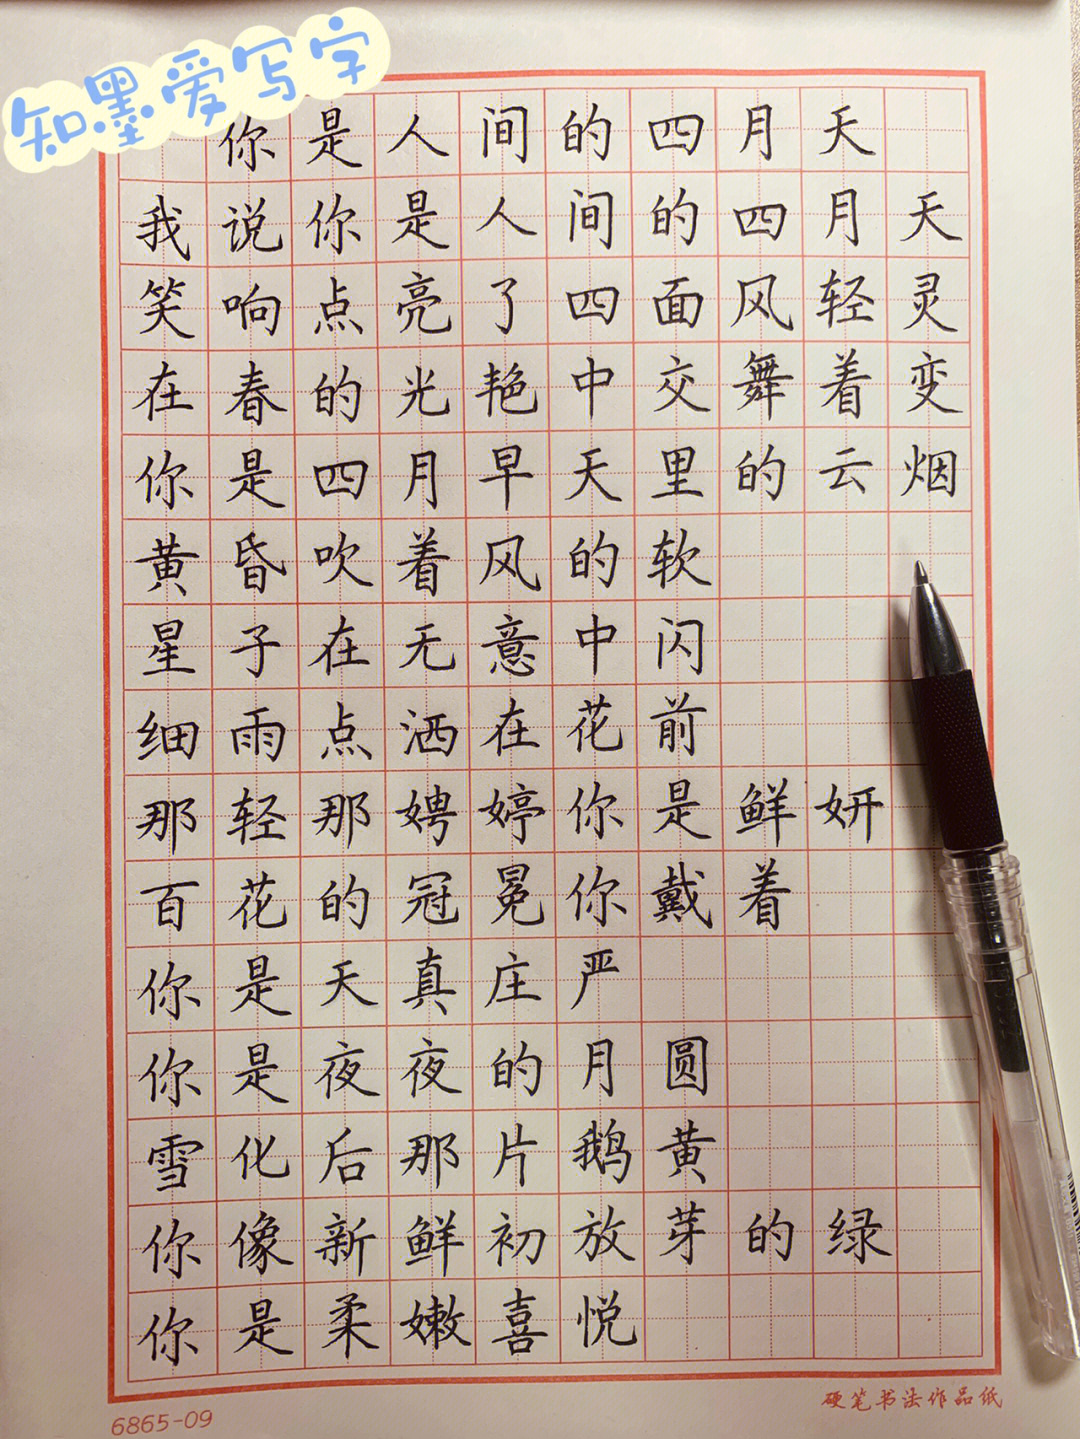 知墨爱写字
你是人间的四月天
我说你是人间的四月天
笑响点亮了四面风轻灵
在春的光艳中交舞着变
你是四月早天里的云烟
黄昏吹着风的软
星子在无意中闪
细雨点洒在花前
那轻那娉婷你是鲜妍
百花的冠冕你戴着
你是天真庄严
你是夜夜的月圆
雪化后那片鹅黄
你像新鲜初放芽的绿
你是柔嫩喜悦
6865-09
硬笔书法作品纸